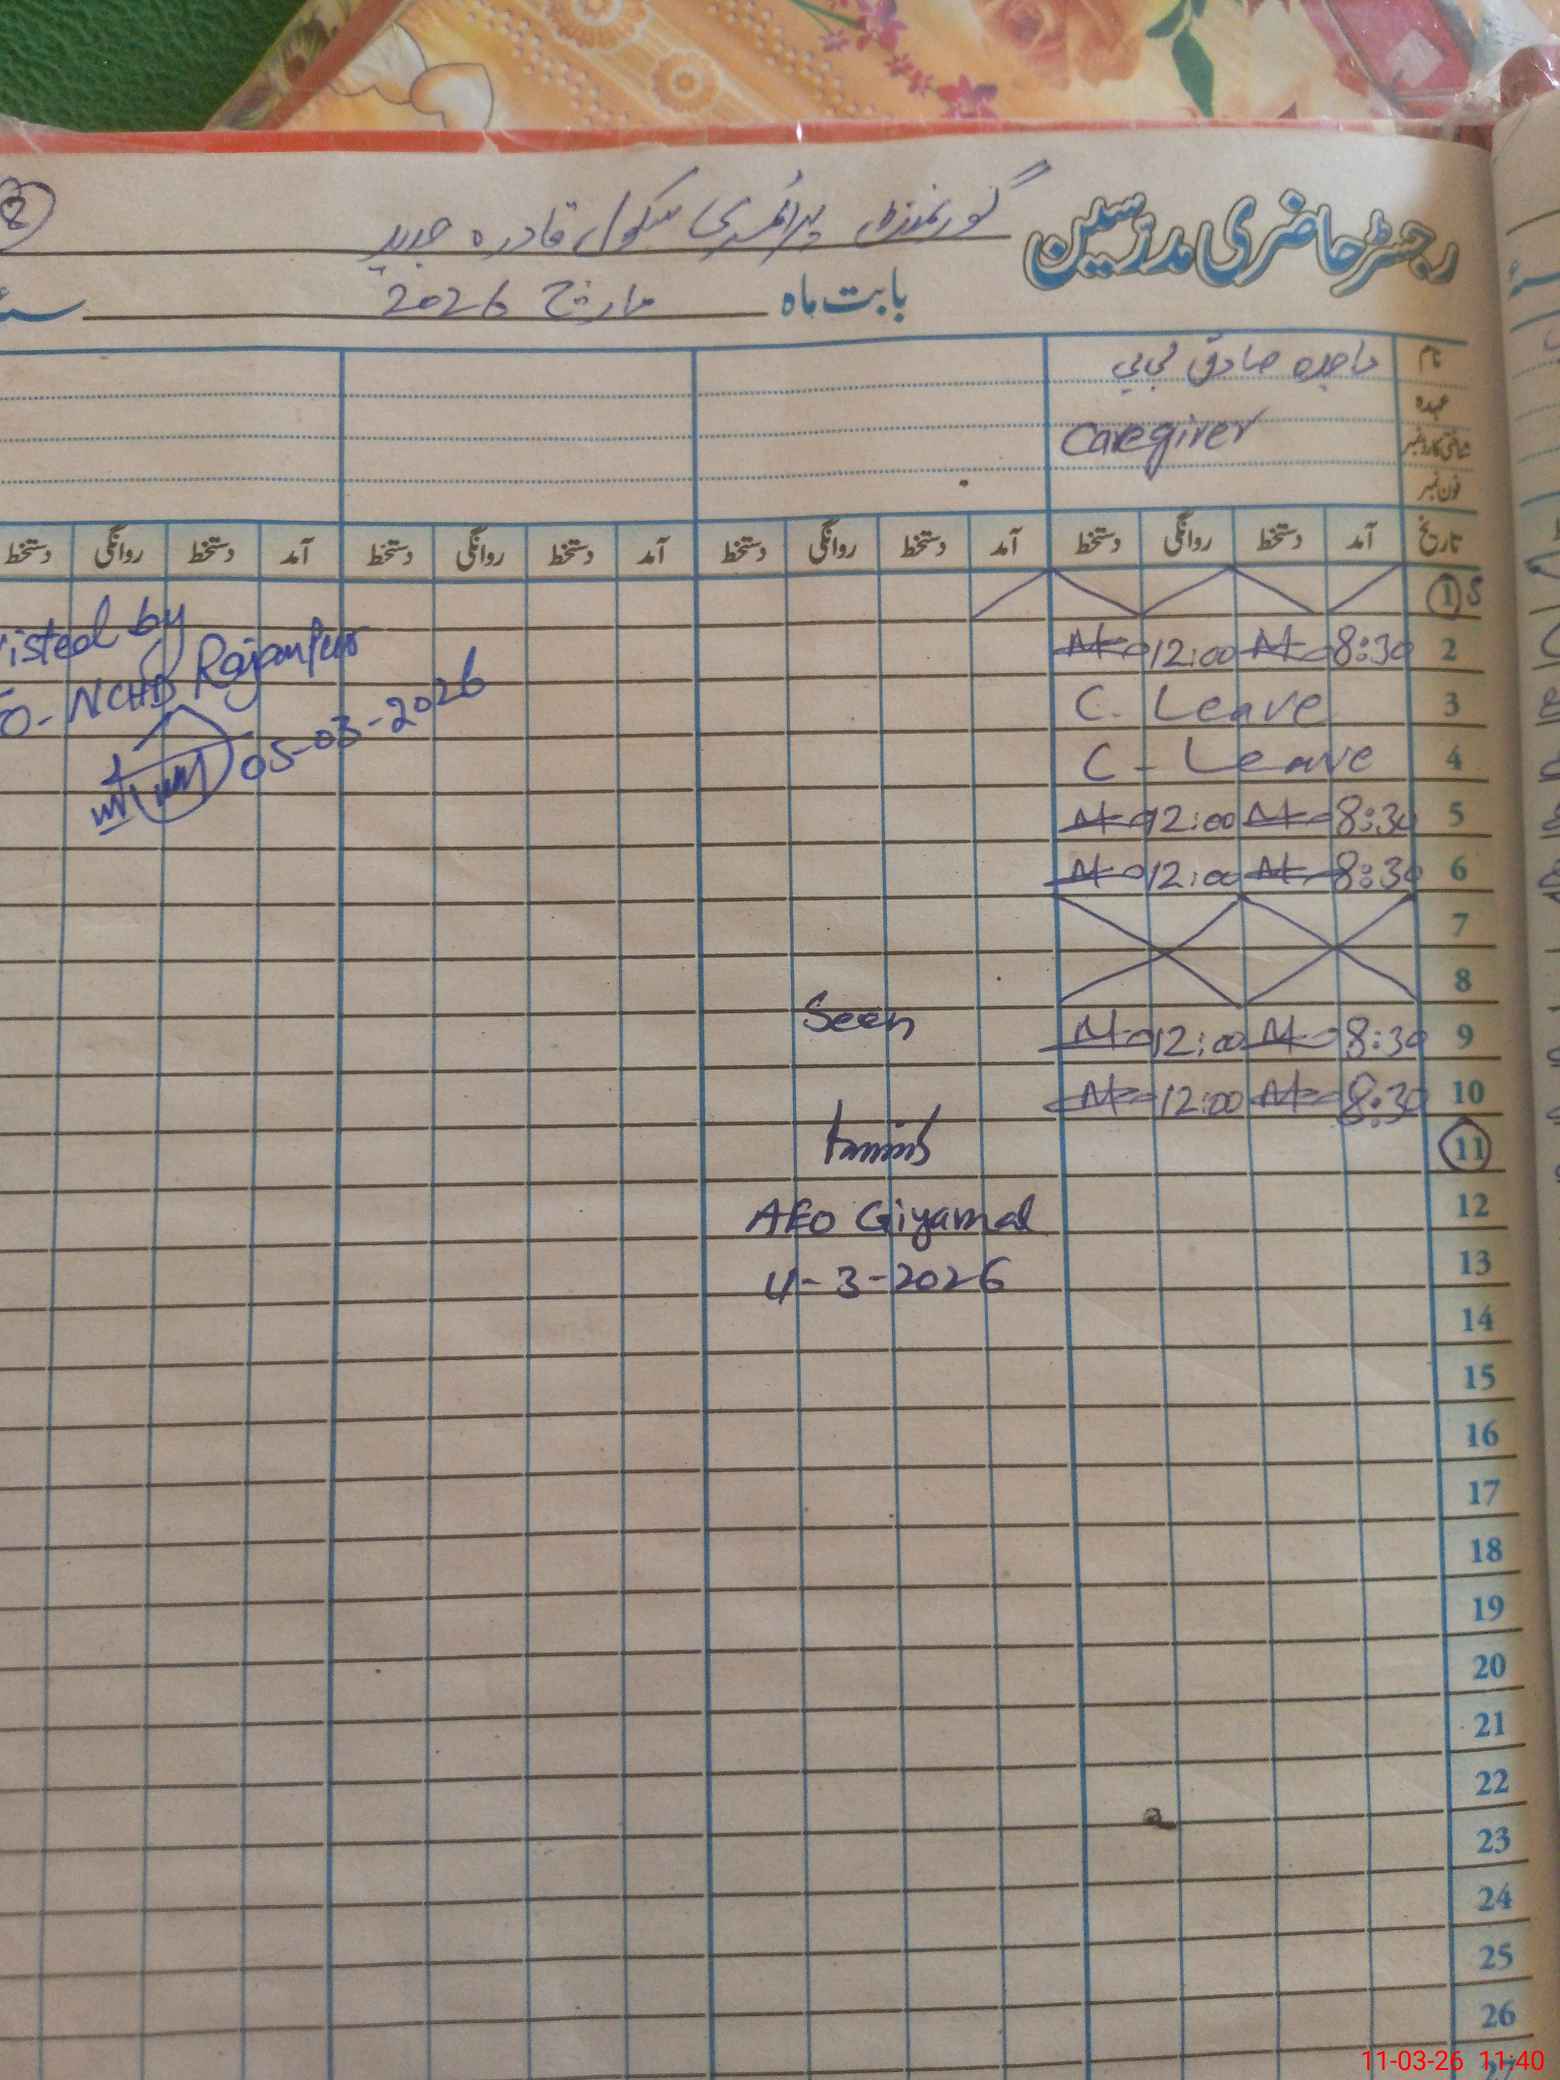 رجسٹر حاضری مدرسین گورنمنٹ پرائمری سکول قادرہ جدید
بابت ماہ مارچ 2026
نام صادق بی بی
عہدہ
Caregiver
شناختی کارڈ نمبر
فون نمبر
تاریخ آمد دستخط روانگی دستخط آمد دستخط روانگی دستخط آمد دستخط روانگی دستخط آمد دستخط روانگی دستخط
1 S
2 8:30 12:00
3 C. Leave
4 C - Leave
5 8:30 12:00
6 8:30 12:00
7
8
9 8:30 12:00
10 8:30 12:00
11
12
13
14
15
16
17
18
19
20
21
22
23
24
25
26
27
isted by
NCHD Rajanpur
05-03-2026
Seen
AEO Giyamal
4-3-2026
11-03-26 11:40